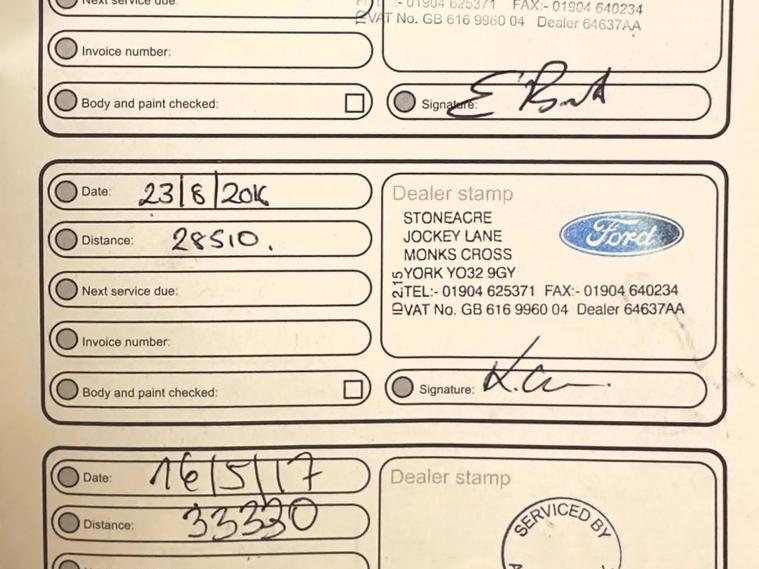 Next service due:
TEL:- 01904 625371 FAX:- 01904 640234
VAT No. GB 616 9960 04 Dealer 64637AA
Invoice number:
Body and paint checked:
Signature:
Date: 23/8/2016
Dealer stamp
STONEACRE
JOCKEY LANE
MONKS CROSS
YORK YO32 9GY
TEL:- 01904 625371 FAX:- 01904 640234
VAT No. GB 616 9960 04 Dealer 64637AA
ID 2.15
Ford
Distance: 28510.
Next service due:
Invoice number:
Body and paint checked:
Signature:
Date: 16/5/17
Distance: 33330
Dealer stamp
SERVICED BY